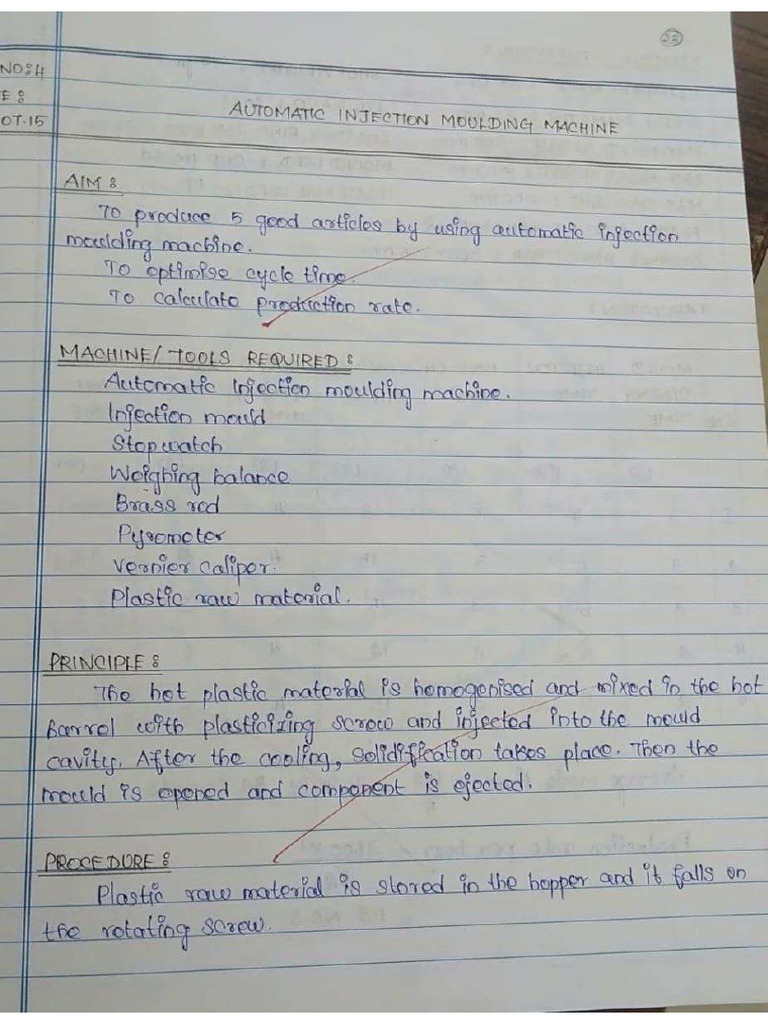 38
NO:4
E:
OT.15
AUTOMATIC INJECTION MOULDING MACHINE
AIM:
To produce 5 good articles by using automatic injection
moulding machine.
To optimise cycle time.
To calculate production rate.
MACHINE/TOOLS REQUIRED:
Automatic Injection moulding machine.
Injection mould
Stopwatch
Weighing balance
Brass rod
Pyrometer
Vernier caliper.
Plastic raw material.
PRINCIPLE:
The hot plastic material is homogenised and mixed in the hot
Barrel with plasticizing screw and injected into the mould
cavity. After the cooling, solidification takes place. Then the
mould is opened and component is ejected.
PROCEDURE:
Plastic raw material is stored in the hopper and it falls on
the rotating screw.